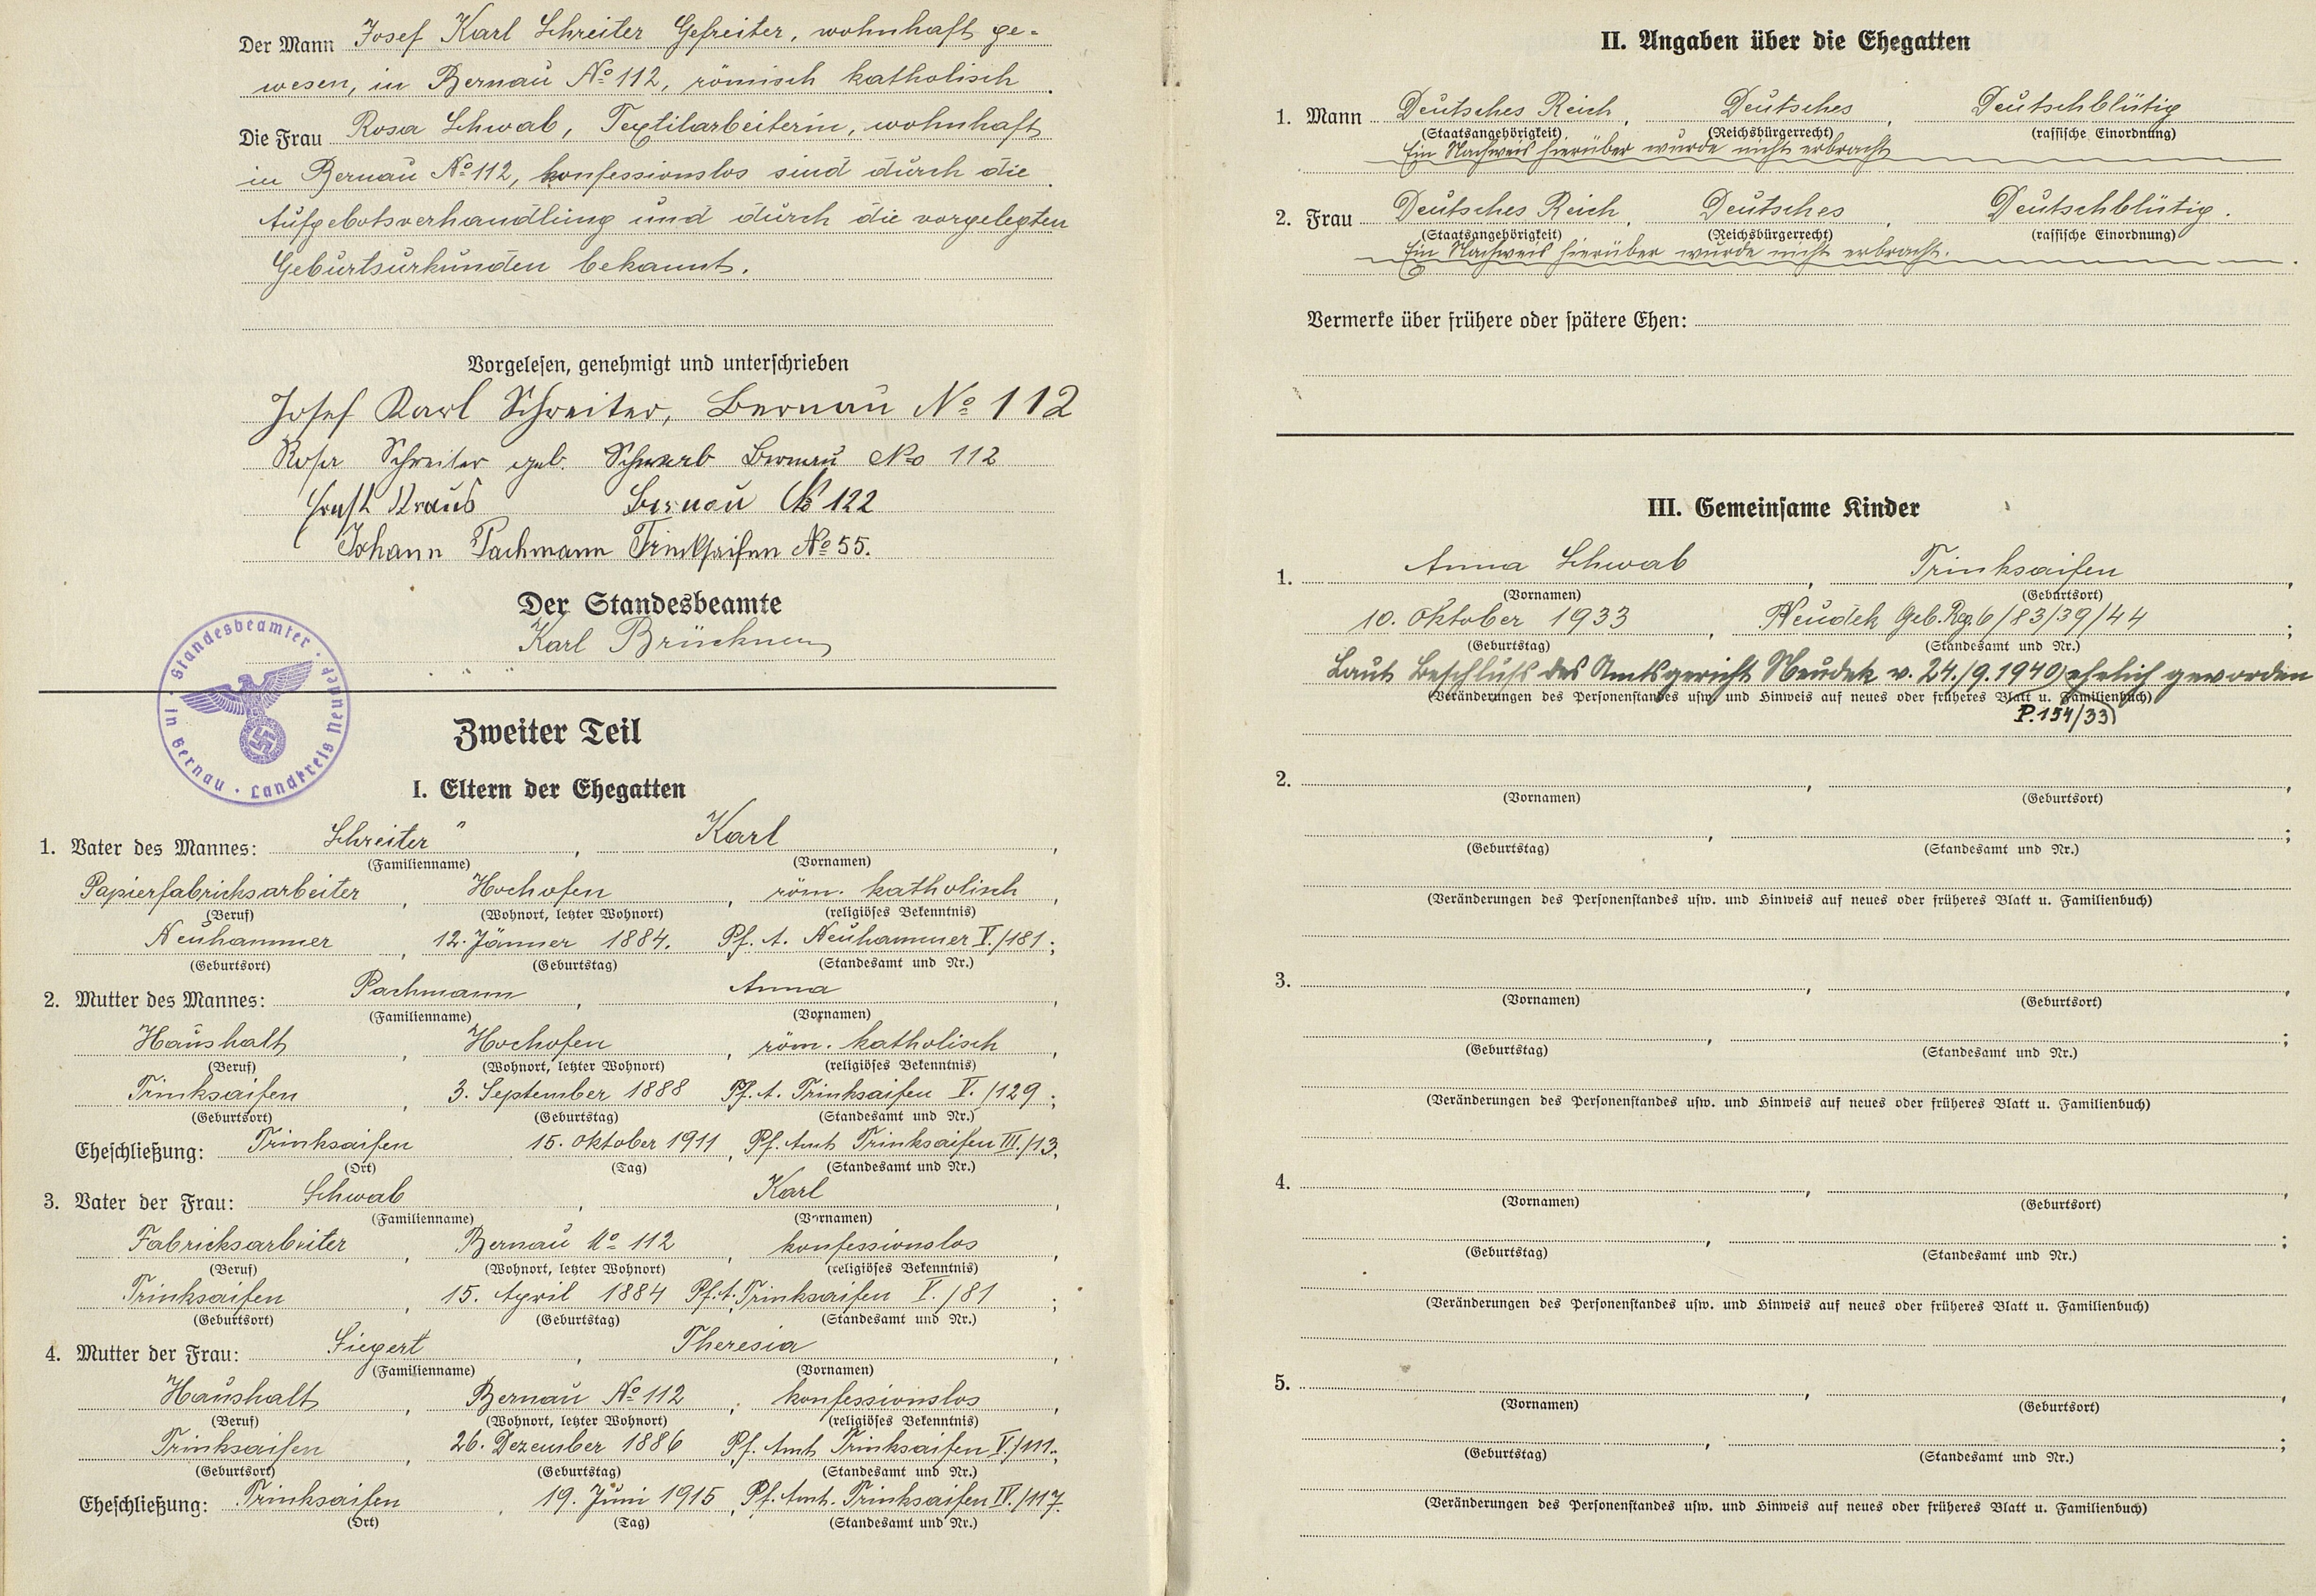 Der Mann Josef Karl Schreiter Gefreiter, wohnhaft ge-
wesen, in Bernau No 112, römisch katholisch
Die Frau Rosa Schwab, Textilarbeiterin, wohnhaft
in Bernau No 112, konfessionslos sind durch die
Aufgebotsverhandlung und durch die vorgelegten
Geburtsurkunden bekannt.
Vorgelesen, genehmigt und unterschrieben
Josef Karl Schreiter, Bernau No 112
Rosa Schreiter geb. Schwab Bernau No 112
Ernst Kraus Bernau No 122
Johann Pachmann Trinksaifen No 55.
Der Standesbeamte
Karl Brückner
Standesbeamter · in Bernau · Landkreis Neudek ·
Zweiter Teil
I. Eltern der Ehegatten
1. Vater des Mannes: Schreiter, Karl,
(Familienname) (Vornamen)
Papierfabricksarbeiter, Hochofen, röm. katholisch,
(Beruf) (Wohnort, letzter Wohnort) (religiöses Bekenntnis)
Neuhammer, 12. Jänner 1884. Pf. A. Neuhammer V./181;
(Geburtsort) (Geburtstag) (Standesamt und Nr.)
2. Mutter des Mannes: Pachmann, Anna,
(Familienname) (Vornamen)
Haushalt, Hochofen, röm. katholisch,
(Beruf) (Wohnort, letzter Wohnort) (religiöses Bekenntnis)
Trinksaifen, 3. September 1888 Pf. A. Trinksaifen V./129;
(Geburtsort) (Geburtstag) (Standesamt und Nr.)
Eheschließung: Trinksaifen, 15. Oktober 1911, Pf. Amt Trinksaifen III./13,
(Ort) (Tag) (Standesamt und Nr.)
3. Vater der Frau: Schwab, Karl,
(Familienname) (Vornamen)
Fabricksarbeiter, Bernau No 112, konfessionslos,
(Beruf) (Wohnort, letzter Wohnort) (religiöses Bekenntnis)
Trinksaifen, 15. April 1884 Pf. A. Trinksaifen V./81;
(Geburtsort) (Geburtstag) (Standesamt und Nr.)
4. Mutter der Frau: Siegert, Theresia,
(Familienname) (Vornamen)
Haushalt, Bernau No 112, konfessionslos,
(Beruf) (Wohnort, letzter Wohnort) (religiöses Bekenntnis)
Trinksaifen, 26. Dezember 1886 Pf. Amt Trinksaifen V./111.;
(Geburtsort) (Geburtstag) (Standesamt und Nr.)
Eheschließung: Trinksaifen, 19. Juni 1915, Pf. Amt. Trinksaifen IV./117.
(Ort) (Tag) (Standesamt und Nr.)
II. Angaben über die Ehegatten
1. Mann Deutsches Reich, Deutsches, Deutschblütig
(Staatsangehörigkeit) (Reichsbürgerrecht) (rassische Einordnung)
Ein Nachweis hierüber wurde nicht erbracht
2. Frau Deutsches Reich, Deutsches, Deutschblütig.
(Staatsangehörigkeit) (Reichsbürgerrecht) (rassische Einordnung)
Ein Nachweis hierüber wurde nicht erbracht.
Vermerke über frühere oder spätere Ehen:
III. Gemeinsame Kinder
1. Anna Schwab, Trinksaifen,
(Vornamen) (Geburtsort)
10. Oktober 1933, Neudek Geb. Reg. 6/83/39/44;
(Geburtstag) (Standesamt und Nr.)
Laut Beschluß des Amtsgericht Neudek v. 24./9.1940 ehelich geworden
(Veränderungen des Personenstandes usw. und Hinweis auf neues oder früheres Blatt u. Familienbuch)
P. 154/33
2. , ,
(Vornamen) (Geburtsort)
, ;
(Geburtstag) (Standesamt und Nr.)
(Veränderungen des Personenstandes usw. und Hinweis auf neues oder früheres Blatt u. Familienbuch)
3. , ,
(Vornamen) (Geburtsort)
, ;
(Geburtstag) (Standesamt und Nr.)
(Veränderungen des Personenstandes usw. und Hinweis auf neues oder früheres Blatt u. Familienbuch)
4. , ,
(Vornamen) (Geburtsort)
, ;
(Geburtstag) (Standesamt und Nr.)
(Veränderungen des Personenstandes usw. und Hinweis auf neues oder früheres Blatt u. Familienbuch)
5. , ,
(Vornamen) (Geburtsort)
, ;
(Geburtstag) (Standesamt und Nr.)
(Veränderungen des Personenstandes usw. und Hinweis auf neues oder früheres Blatt u. Familienbuch)